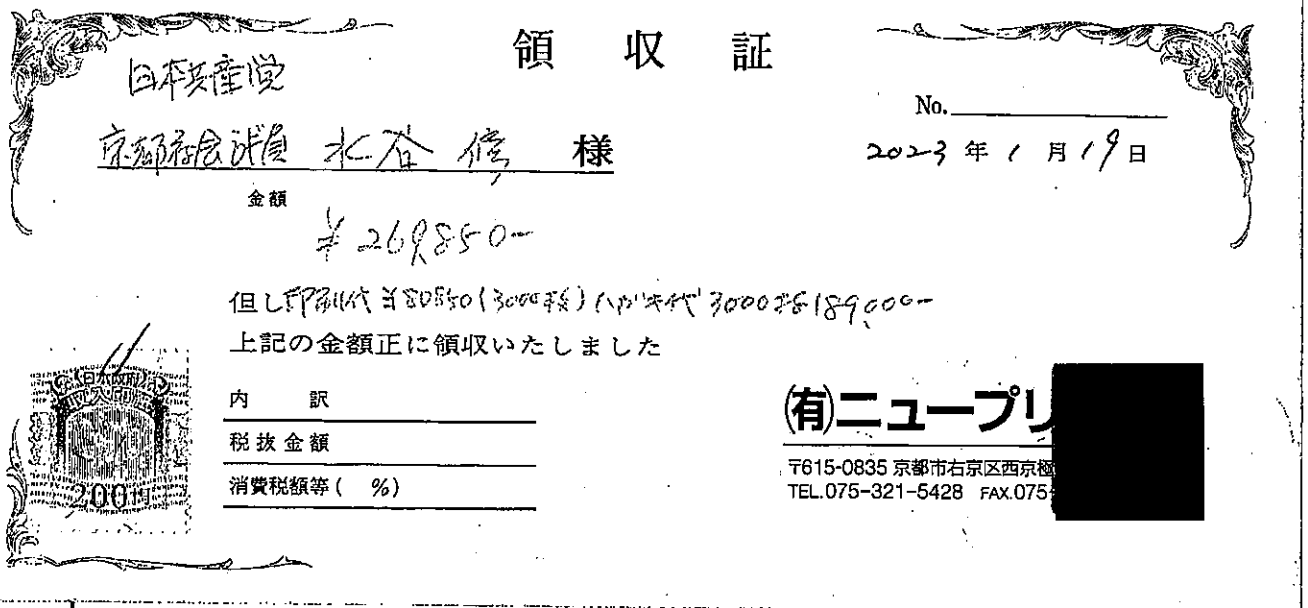 領収証
日本共産党
No.
京都府会議員 水谷修 様
2023年1月19日
金額
¥269,850-
但し印刷代¥80850(3000枚)ハガキ代3000枚189,000-
上記の金額正に領収いたしました
内訳
税抜金額
消費税額等( %)
日本政府
収入印紙
200円
(有)ニュープリ
〒615-0835 京都市右京区西京極
TEL.075-321-5428 FAX.075-